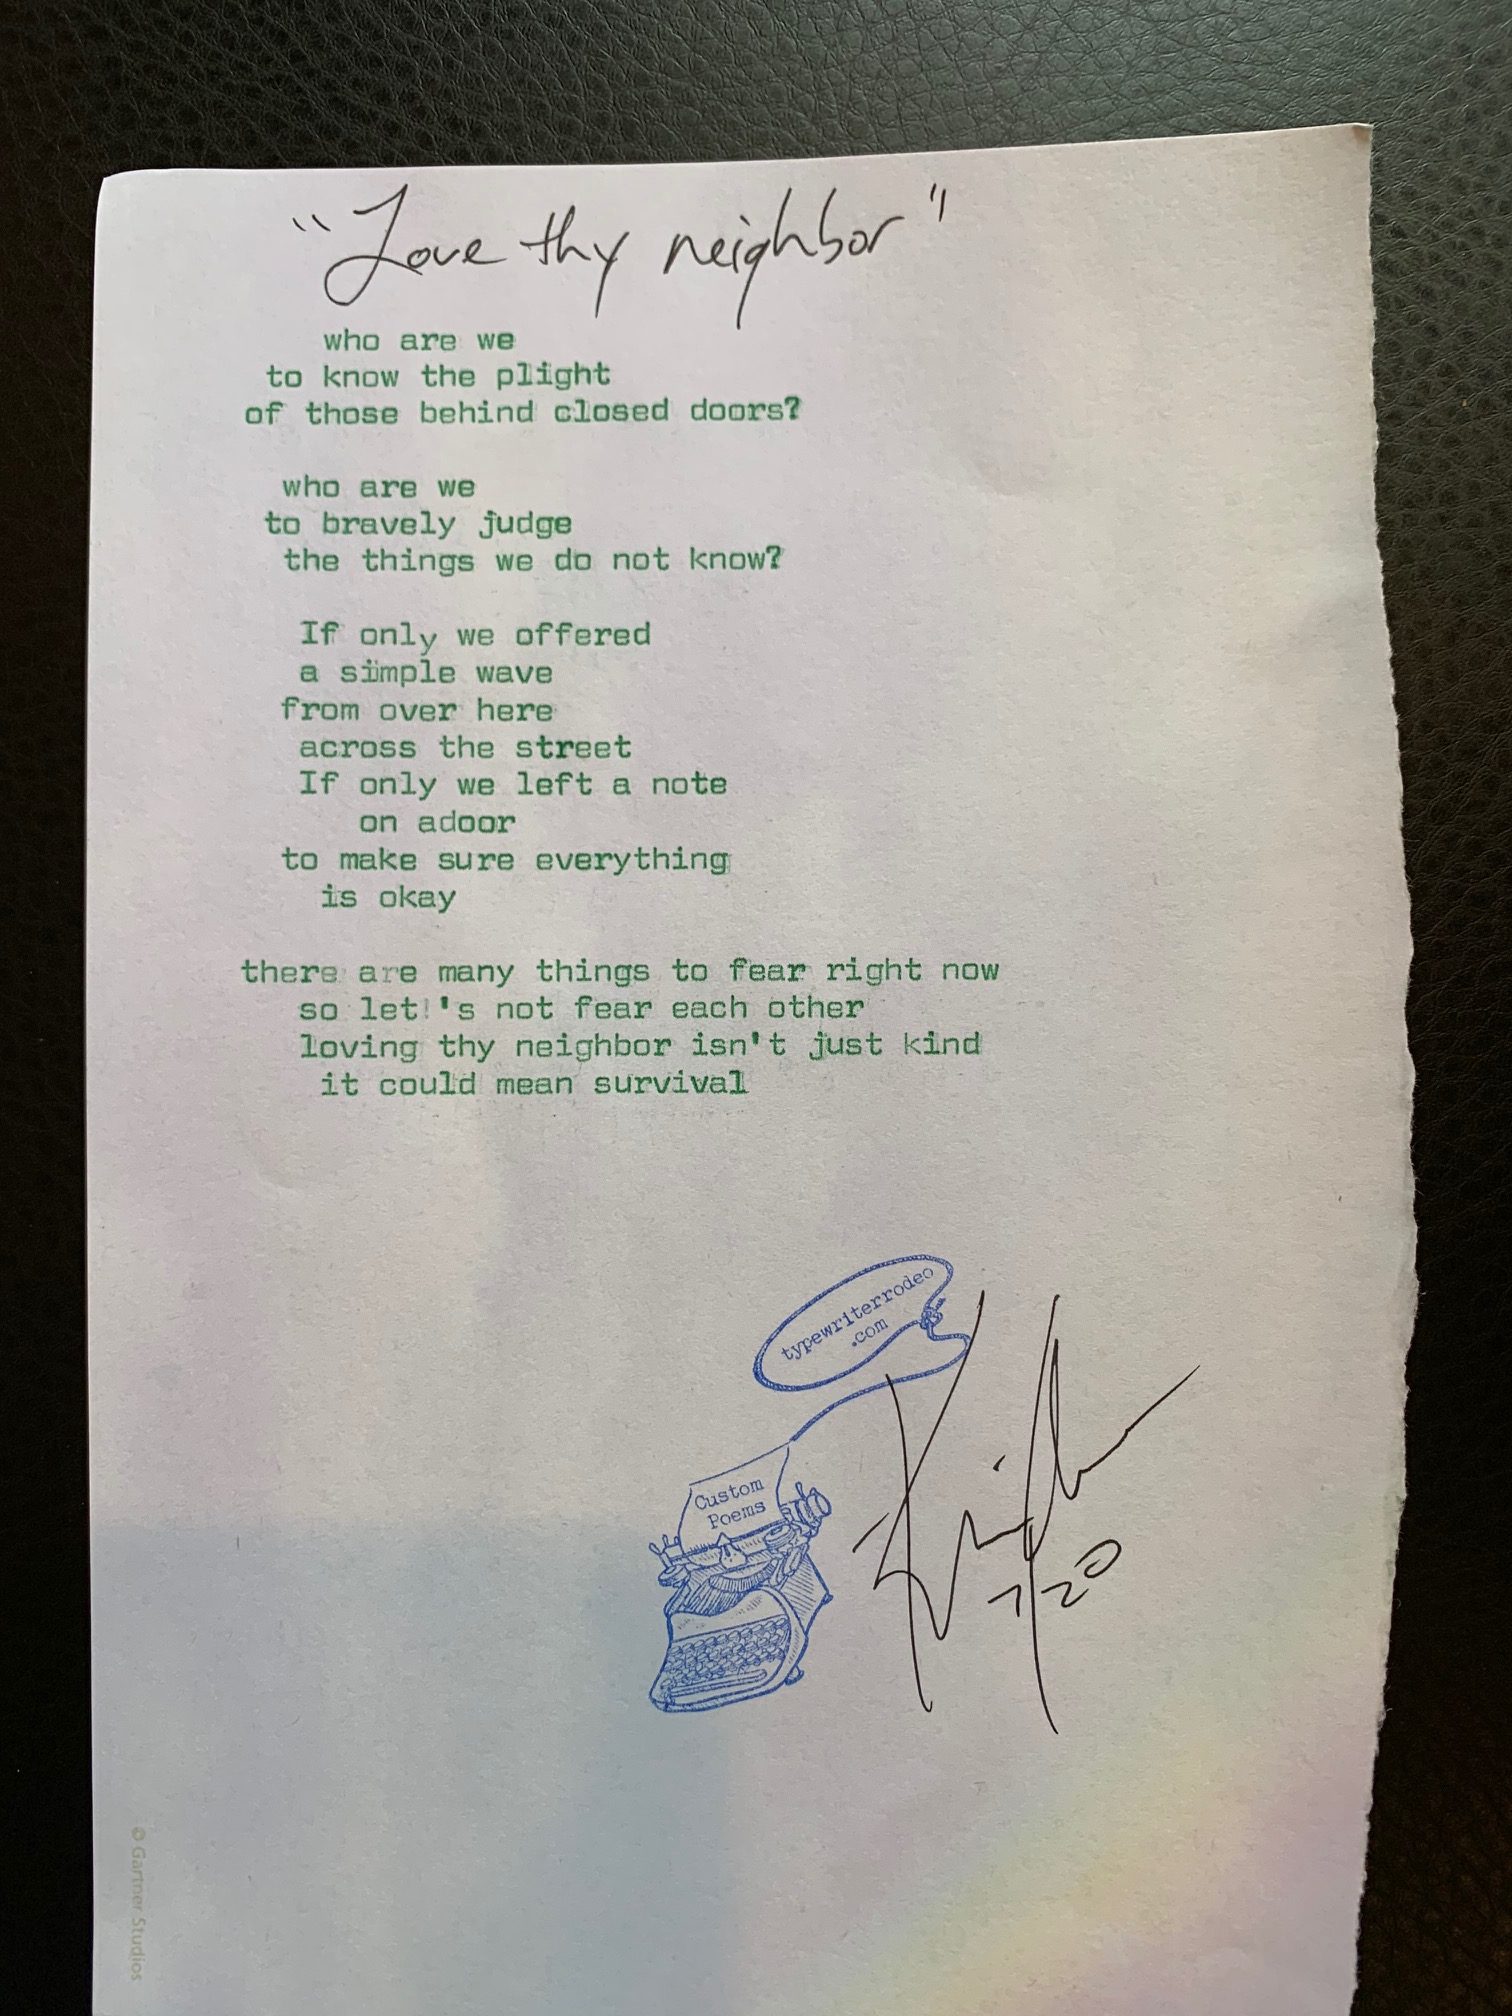 "Love thy neighbor"
who are we
to know the plight
of those behind closed doors?
who are we
to bravely judge
the things we do not know?
If only we offered
a simple wave
from over here
across the street
If only we left a note
on adoor
to make sure everything
is okay
there are many things to fear right now
so let's not fear each other
loving thy neighbor isn't just kind
it could mean survival
typewriterrodeo
.com
Custom
Poems
7/20
© Gartner Studios